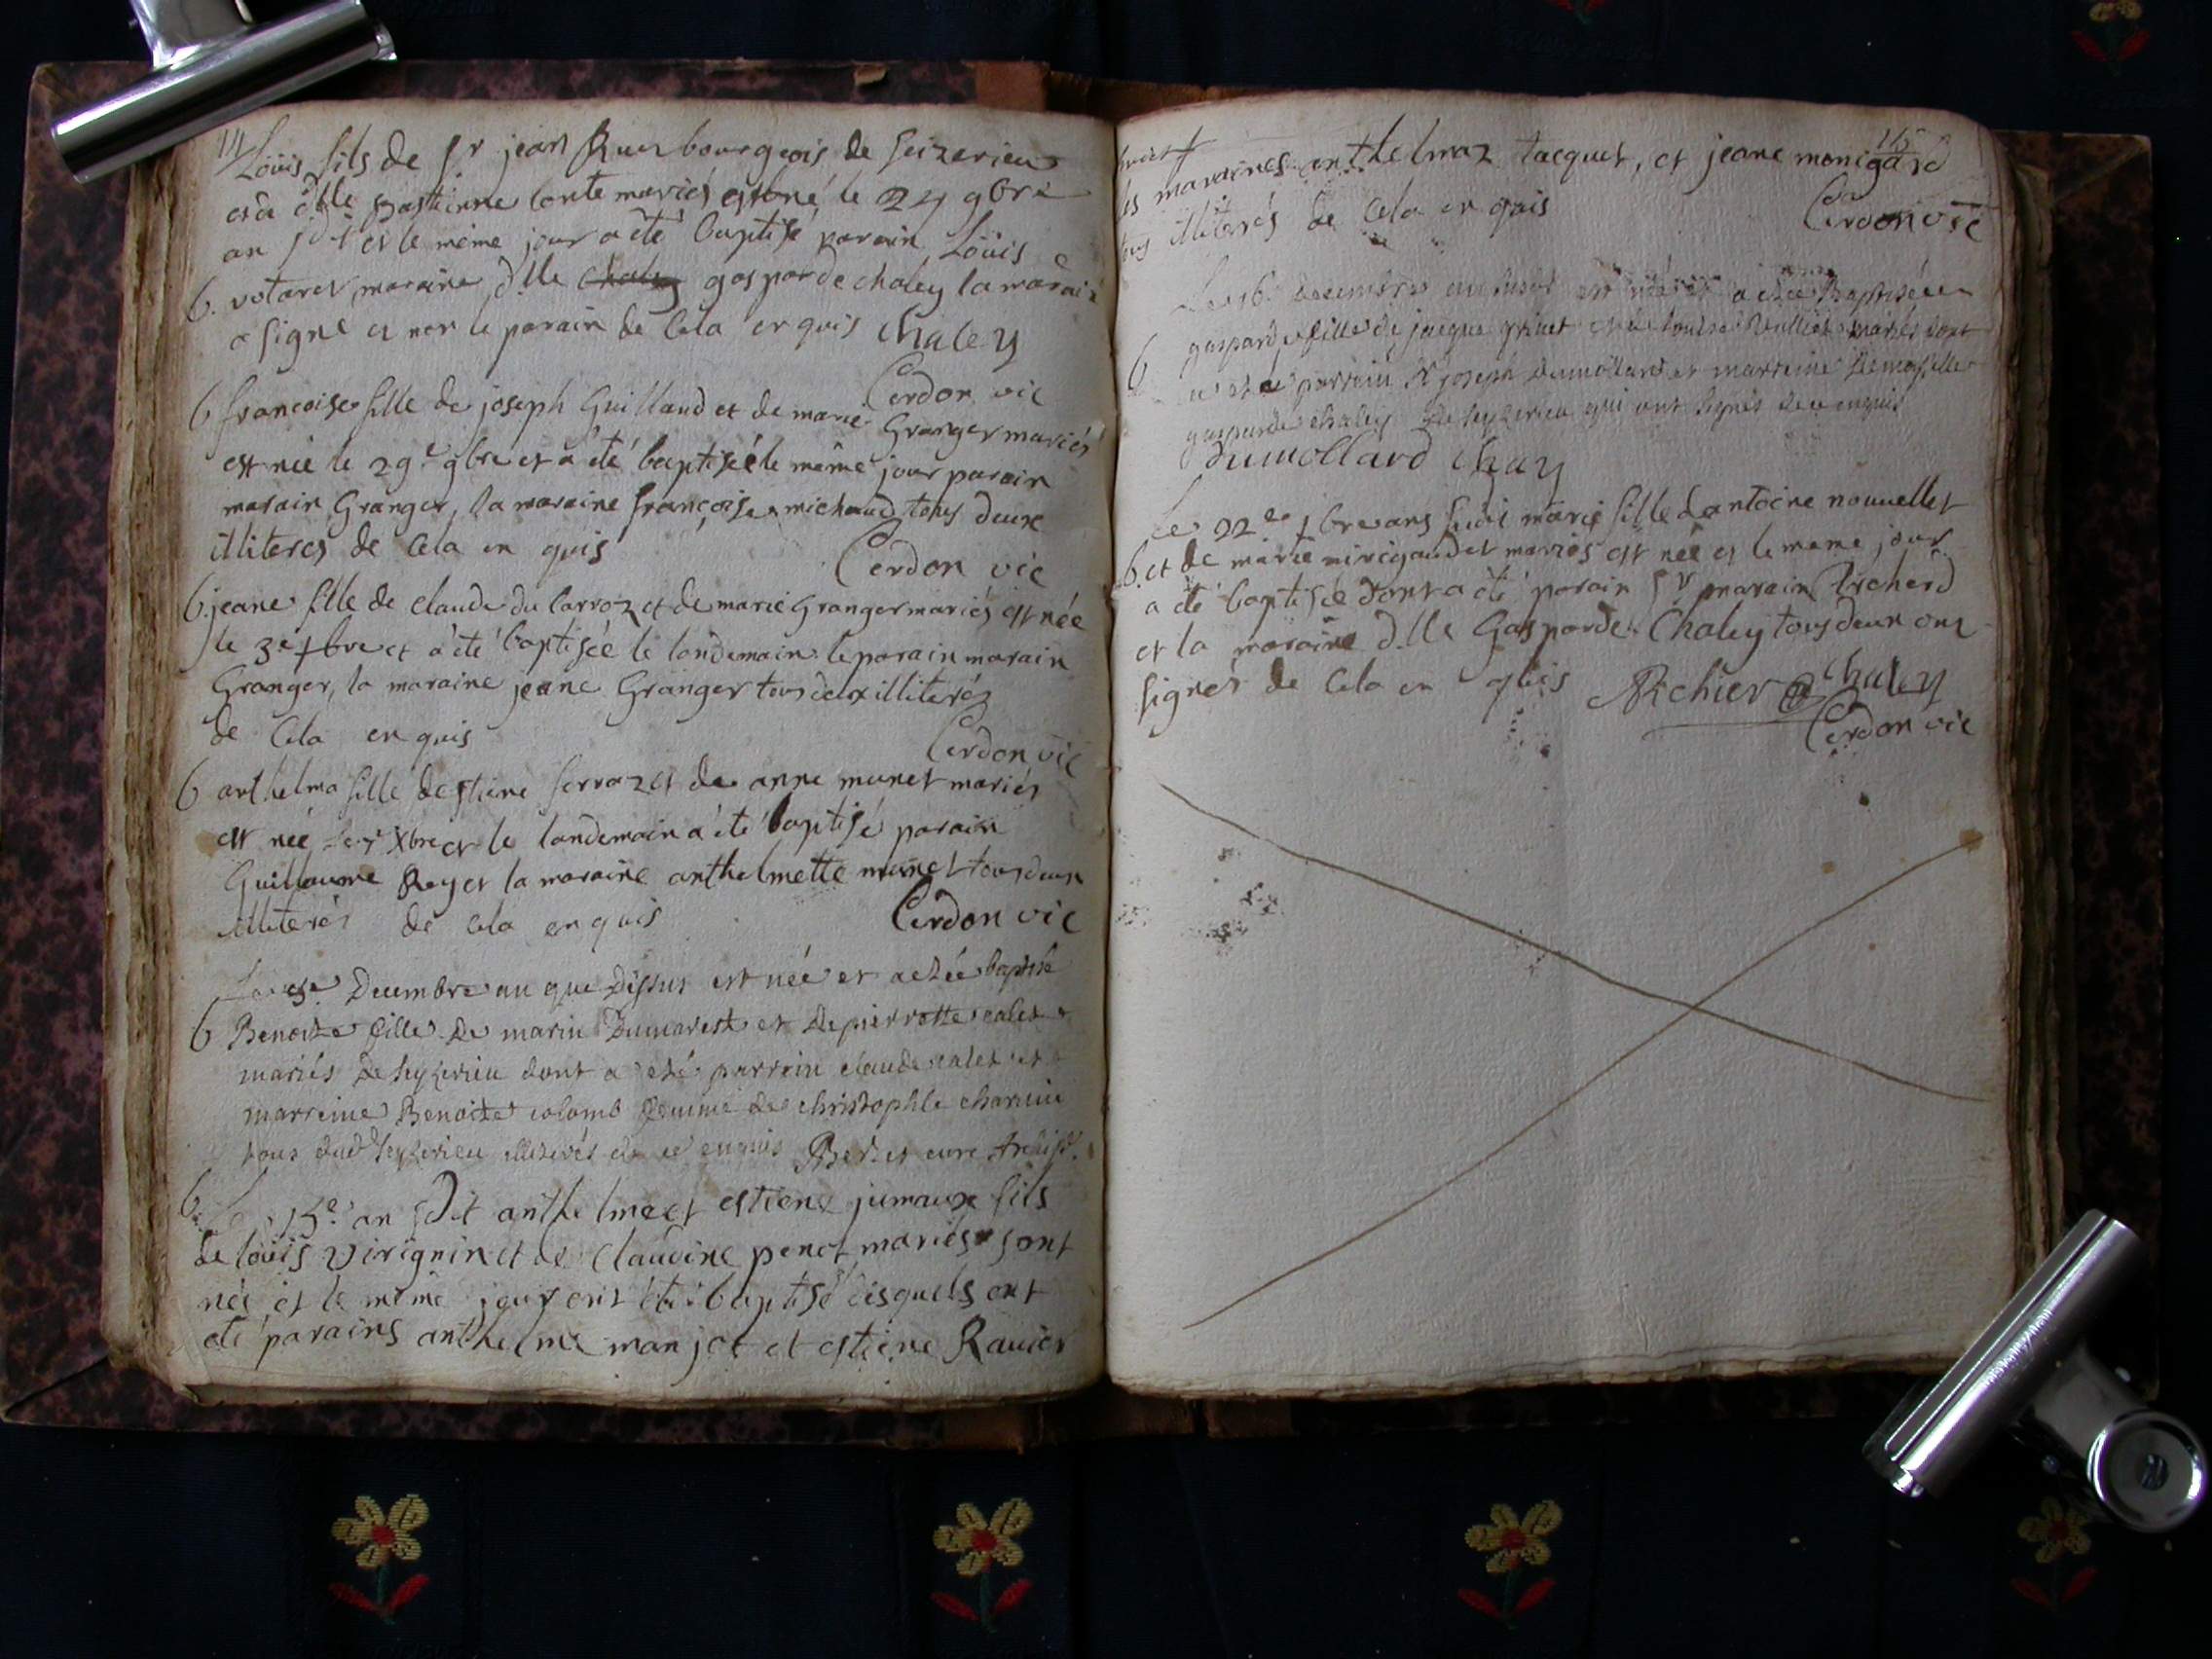 114
Loüis fils de Sr jean Rux bourgeois de Seizerieu
et de dlle Bastienne Conte mariés est né le 24 9bre
an sdit et le même jour a été baptisé parain Loüis
B. votaret maraine dlle chaley gasparde chaley la maraine
a signé et non le parain de Cela enquis Chaley
Cerdon vic
B francoise fille de joseph Guillaud et de marie Granger mariés
est née le 29e 9bre et a été baptisée le même jour parain
marain Granger, la maraine françoise michaud tous deux
illiterés de Cela en quis
Cerdon vic
B. jeane fille de claude du Carroz et de marie Granger mariés est née
le 3e Xbre et a été baptisée le landemain le parain marain
Granger, la maraine jeane Granger tous deux illiterés
de Cela en quis
Cerdon vic
B anthelma fille destiene ferroz et de anne munet mariés
est née le 7 Xbre et le landemain a été baptisé parain
Guillaume Rey et la maraine anthelmette munet tous deux
illiterés de Cela en quis Cerdon vic
Le Decembre an que Dessus est née et a etée baptisée
B Benoite fille de marin Dumarest et de pierrotte calet
mariés de Seyzerieu dont a eté parrein claude calet et
marreine Benoite colomb femme de christophle charvin
tous dud Seyzerieu illiterés de ce enquis Betet curé Archip.
B. Le 15e an sdit anthelme et estiene jumaux fils
de loüis virignin et de Claudine penet mariés sont
née et le même jour ont été baptisé desquels ont
été parains anthelme manjot et estiene Ravier
115
les maraines anthelmaz tacquet, et jeane monigard
tous illiterés de Cela en quis Cerdon vic
Le 16e decembre an susdit est née et a etée Baptisée
B gasparde fille de jacque grinet et de louise Vulliod mariés dont
a eté parrein Sr joseph Dumollard et marreine Demoiselle
gasparde chaley de Seyzerieu qui ont signés de ce enquis
Dumollard Chaley
Le 22e Xbre ans sudit marie fille dantoine nouvellet
B. et de marie mirigaudet mariés est née et le meme jour
a été baptisée dont a été parain Sr marain Archerd
et la maraine dlle Gasparde Chaley tous deux ont
signés de Cela en quis Archier Chaley
Cerdon vic